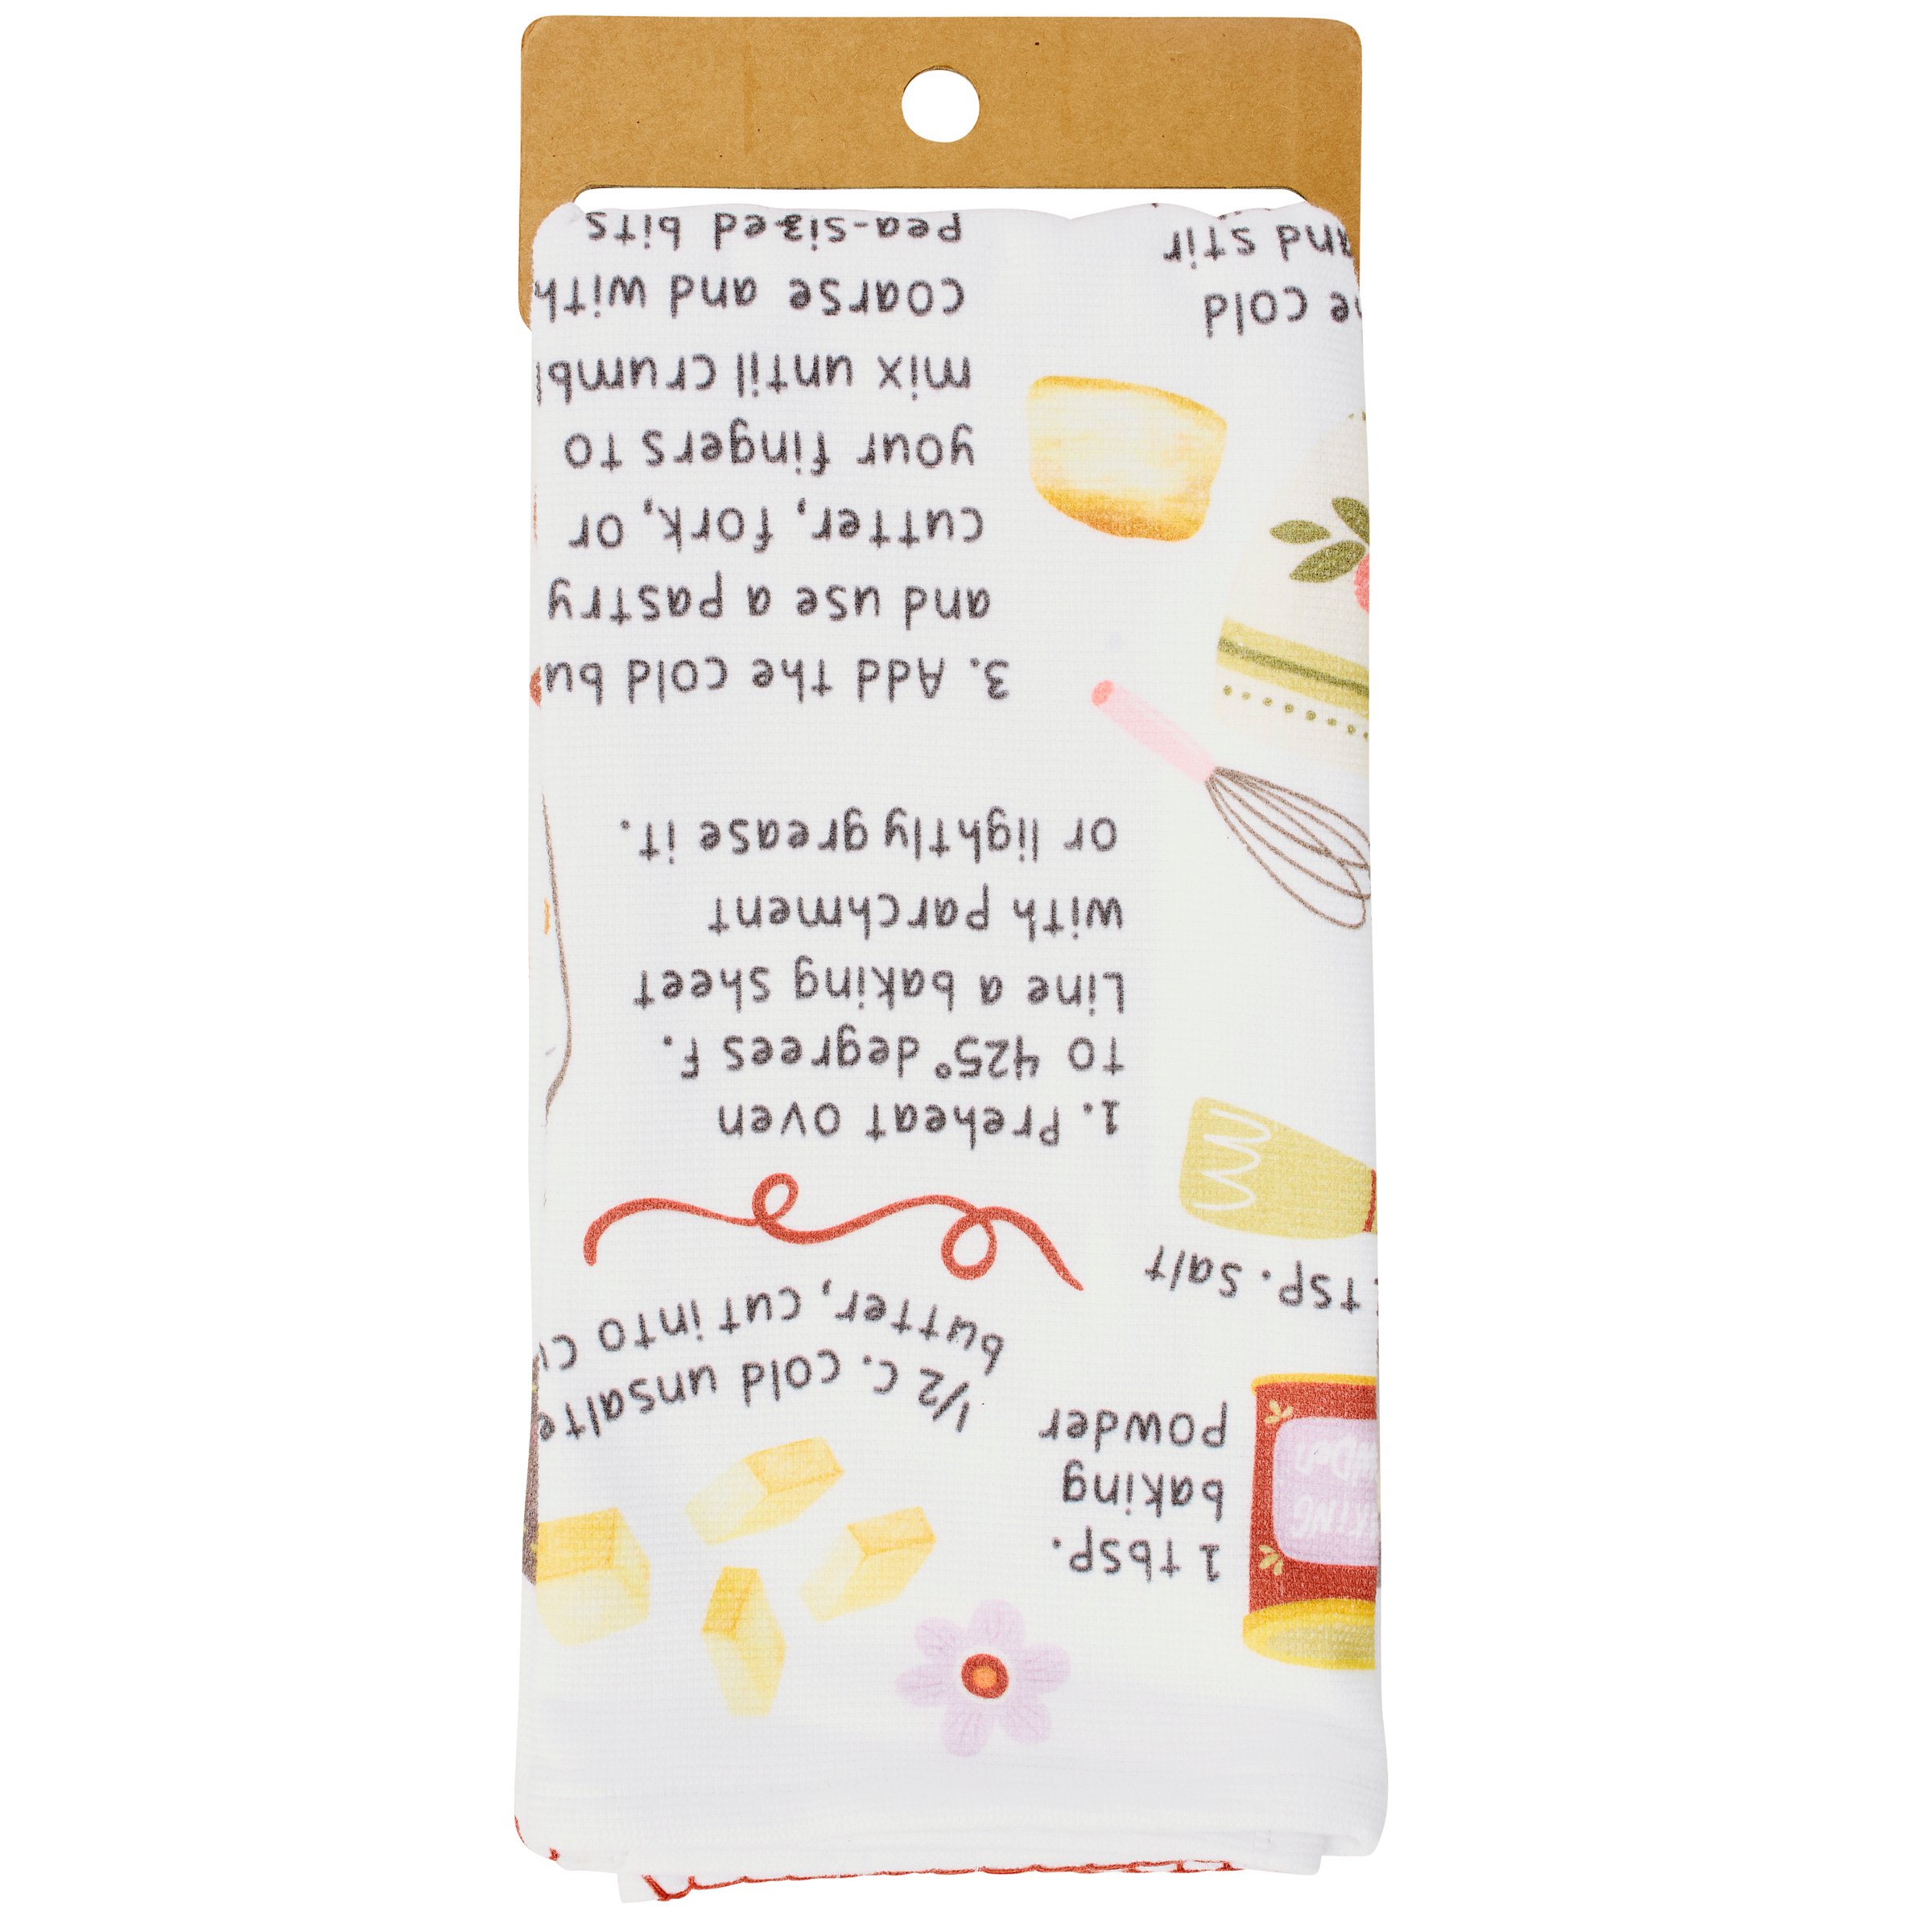 1 tbsp.
baking
powder
1/2 c. cold unsalte
butter, cut into cu
tsp. salt
1. Preheat oven
to 425° degrees F.
Line a baking sheet
with parchment
or lightly grease it.
3. Add the cold bu
and use a pastry
cutter, fork, or
your fingers to
mix until crumbl
coarse and with
pea-sized bits
e cold
and stir